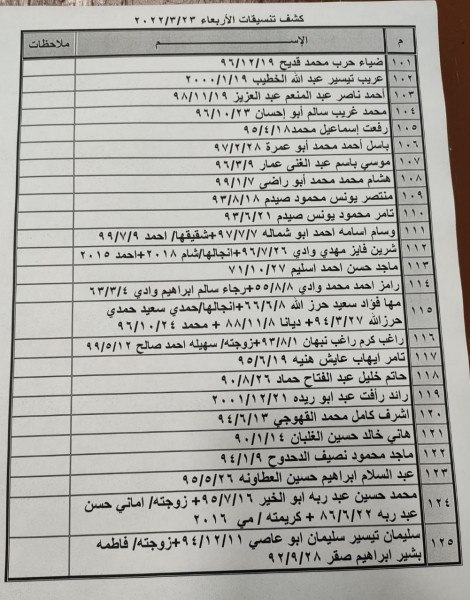 كشف تنسيقات الأربعاء ٢٠٢٢/٣/٢٣
م الإســـــم ملاحظات
١٠١ ضياء حرب محمد قديح ٩٦/١٢/١٩
١٠٢ عريب تيسير عبد الله الخطيب ٢٠٠٠/١/١٩
١٠٣ أحمد ناصر عبد المنعم عبد العزيز ٩٨/١١/١٩
١٠٤ محمد غريب سالم أبو إحسان ٩٦/١٠/٢٣
١٠٥ رفعت إسماعيل محمد٩٥/٤/١٨
١٠٦ باسل أحمد محمد أبو عمرة ٩٧/٢/٢٨
١٠٧ موسي باسم عبد الغنى عمار ٩٦/٣/٩
١٠٨ هشام محمد محمد أبو راضي ٩٩/١/٧
١٠٩ منتصر يونس محمود صيدم ٩٣/٨/١٨
١١٠ تامر محمود يونس صيدم ٩٣/٦/٢١
١١١ وسام اسامه احمد ابو شماله ٩٧/٧/٧+شقيقها/ احمد ٩٩/٧/٩
١١٢ شرين فايز مهدي وادي ٩٦/٧/٢٦+انجالها/شام ٢٠١٨+احمد ٢٠١٥
١١٣ ماجد حسن احمد اسليم ٧١/١٠/٢٧
١١٤ رامز احمد محمد وادي ٥٥/٨/٨+رجاء سالم ابراهيم وادي ٦٣/٣/٤
١١٥ مها فؤاد سعيد حرز الله ٦٦/٦/٨+انجالها/حمدي سعيد حمدي
حرزالله ٩٤/٣/٢٧+ ديانا ٨٨/١١/٨ + محمد ٩٦/١٠/٢٤
١١٦ راغب كرم راغب نبهان ٩٣/٨/١+زوجته/ سهيله احمد صالح ٩٩/٥/١٢
١١٧ تامر ايهاب عايش هنيه ٩٥/٦/١٩
١١٨ حاتم خليل عبد الفتاح حماد ٩٠/٨/٢٦
١١٩ رائد رأفت عبد ابو ريده ٢٠٠١/١٢/٢١
١٢٠ اشرف كامل محمد القهوجي ٩٤/٦/١٣
١٢١ هاني خالد حسين الغلبان ٩٠/١/١٤
١٢٢ ماجد محمود نصيف الدحدوح ٩٤/١/٩
١٢٣ عبد السلام ابراهيم حسين العطاونه ٩٥/٥/٢٦
١٢٤ محمد حسين عبد ربه أبو الخير ٩٥/٧/١٦+ زوجته/ اماني حسن
عبد ربه ٨٦/٦/٢٢ + كريمته / مي ٢٠١٦
١٢٥ سليمان تيسير سليمان ابو عاصي ٩٤/١٢/١١+زوجته/ فاطمه
بشير ابراهيم صقر ٩٢/٩/٢٨